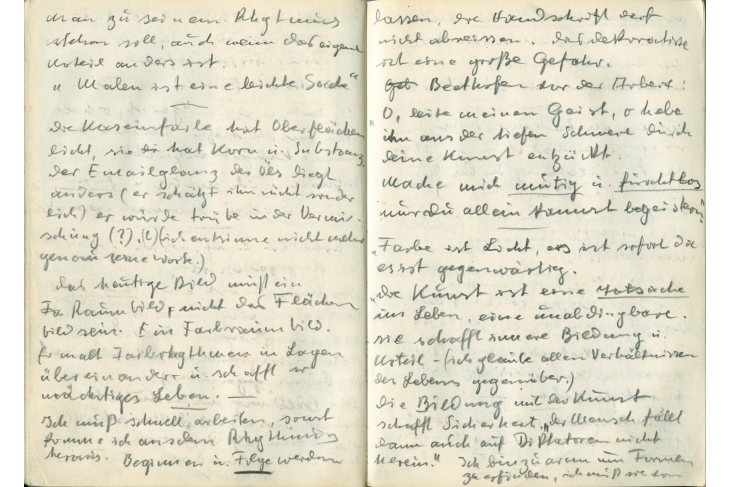 man zu seinem Rhytmus
stehen soll, auch wenn das eigene
Urteil anders ist.
„ Malen ist eine leichte Sache“
die Kaseinfarbe hat Oberflächen
licht, sie hat Korn u. Substanz
der Emailglanz des Öls liegt
anders (er schätzt ihn nicht sonder
lich) er würde trübe in der Vermi-
schung (?). (ich entsinne nicht mehr
genau seine Worte.)
das heutige Bild muß ein
Raumbild, nicht das Flächen
bild sein. Ein Farbraumbild.
Er malt Farbrhythmen in Lagen
übereinander u. schafft so
mächtiges Leben.
Ich muß schnell arbeiten, sonst
komme ich aus dem Rhythmus
heraus. Beginnen u. Folge werden
lassen, die Handschrift darf
nicht abreissen. Das dekorative
ist eine große Gefahr.
Beethofen vor der Arbeit:
„O, leite meinen Geist, o hebe
ihn aus der tiefen Schwere durch
deine Kunst entzückt.
Mache mich mutig u. furchtlos
nur du allein kannst begeistern“
„Farbe ist Licht, es ist sofort da
es ist gegenwärtig.
„die Kunst ist eine Tatsache
im Leben, eine unabdingbare.
sie schafft innere Bildung u.
Urteil – (ich glaube allen Verhältnissen
des Lebens gegenüber.)
die Bildung mit der Kunst
schafft Sicherheit, der Mensch fällt
dann auch auf Diktatoren nicht
herein.“ Ich bin zu arm um Formen
zu erfinden, ich muß sie von